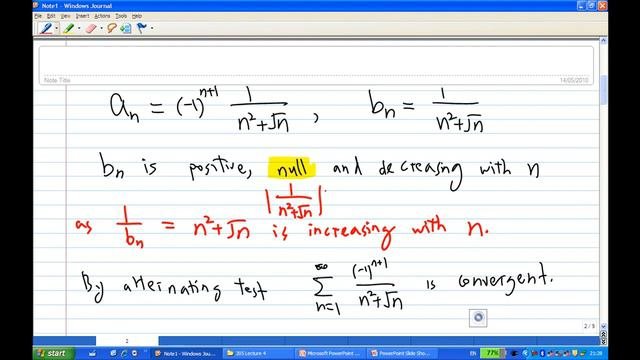 Note1 - Windows Journal
File Edit View Insert Actions Tools Help
Note Title
14/05/2010
aₙ = (-1)ⁿ⁺¹ 1/(n²+√n) , bₙ = 1/(n²+√n)
bₙ is positive, null and decreasing with n
|1/(n²+√n)|
as 1/bₙ = n²+√n is increasing with n.
By alternating test ∑ₙ₌₁^∞ (-1)ⁿ⁺¹/(n²+√n) is convergent.
2
start
Note1 - Windows Jour...
205 Lecture 4
Microsoft PowerPoint ...
PowerPoint Slide Sho...
EN
77%
21:28